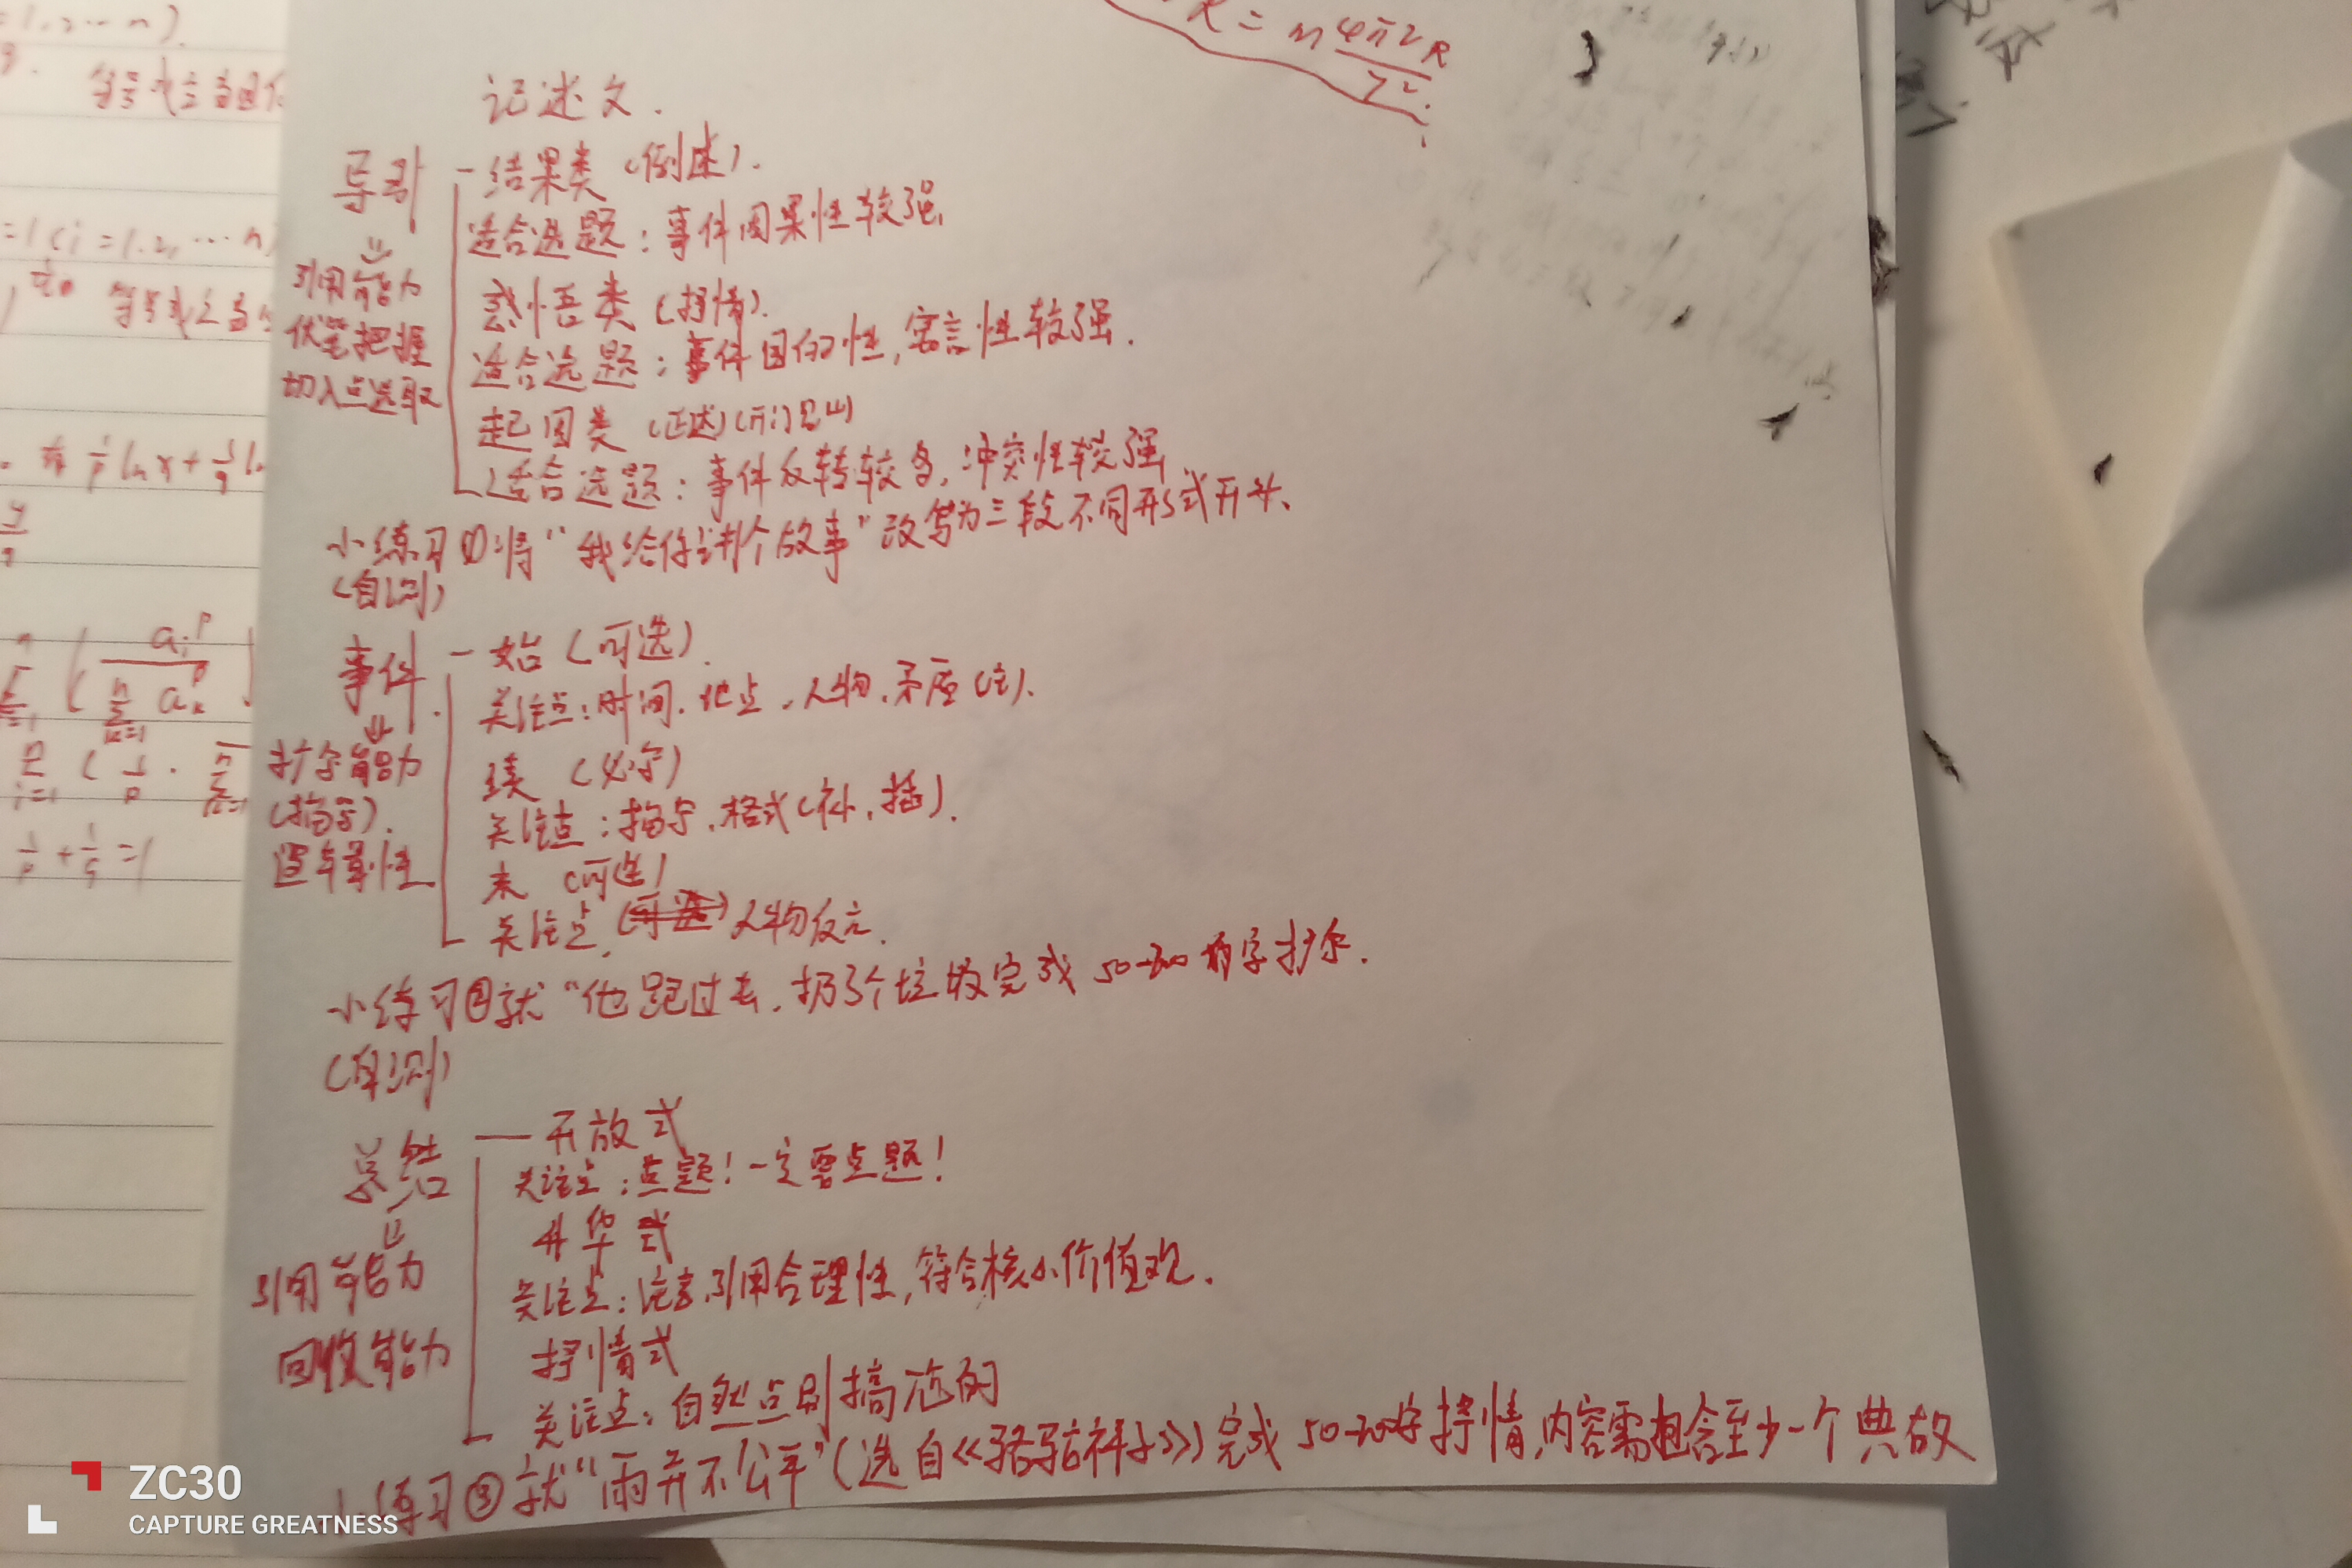 记述文.
导引 - 结果类 (倒述).
适合选题: 事件因果性较强.
引用能力
感悟类 (抒情).
伏笔把握
适合选题: 事件目的性, 寓言性较强.
切入点选取
起因类 (正述) (开门见山)
适合选题: 事件反转较多, 冲突性较强
小练习① 将“我给你讲个故事”改写为三段不同形式开头.
(自测)
事件 - 始 (可选).
关注点: 时间. 地点. 人物. 矛盾 (主).
扩写能力
续 (必写)
(描写).
关注点: 描写. 格式 (补. 插).
逻辑性
末 (可选)
关注点. 人物反应.
小练习② 就“他跑过去, 扔了个垃圾完成 50-200 字扩写.
(自测)
总结 — 开放式
关注点: 点题! 一定要点题!
升华式
引用能力
关注点: 注意引用合理性, 符合核心价值观.
回收能力
抒情式
关注点: 自然点别搞尬的
小练习③ 就“雨并不公平”(选自《骆驼祥子》) 完成 50-200字抒情, 内容需包含至少一个典故
ZC30
CAPTURE GREATNESS